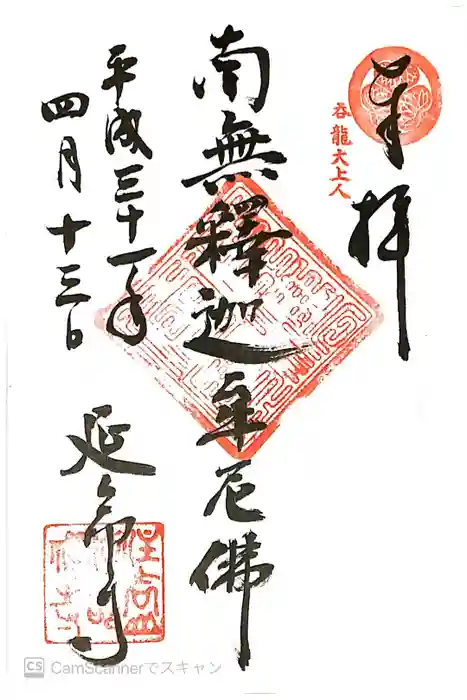 奉拝
呑龍大上人
南無釋迦牟尼佛
平成三十一年
四月十三日
延命寺
CS CamScannerでスキャン